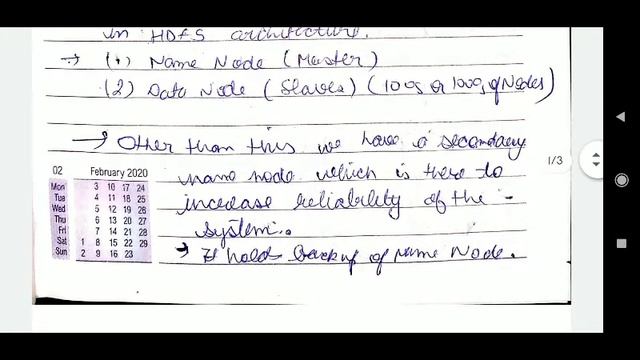 in HDFS architecture.
→ (1) Name Node (Master)
(2) Data Node (Slaves) (100s or 1000s of Nodes)
→ Other than this we have a secondary
name node which is there to
increase reliability of the
system.
→ It holds backup of Name Node.
1/3
02 February 2020
Mon 3 10 17 24
Tue 4 11 18 25
Wed 5 12 19 26
Thu 6 13 20 27
Fri 7 14 21 28
Sat 1 8 15 22 29
Sun 2 9 16 23